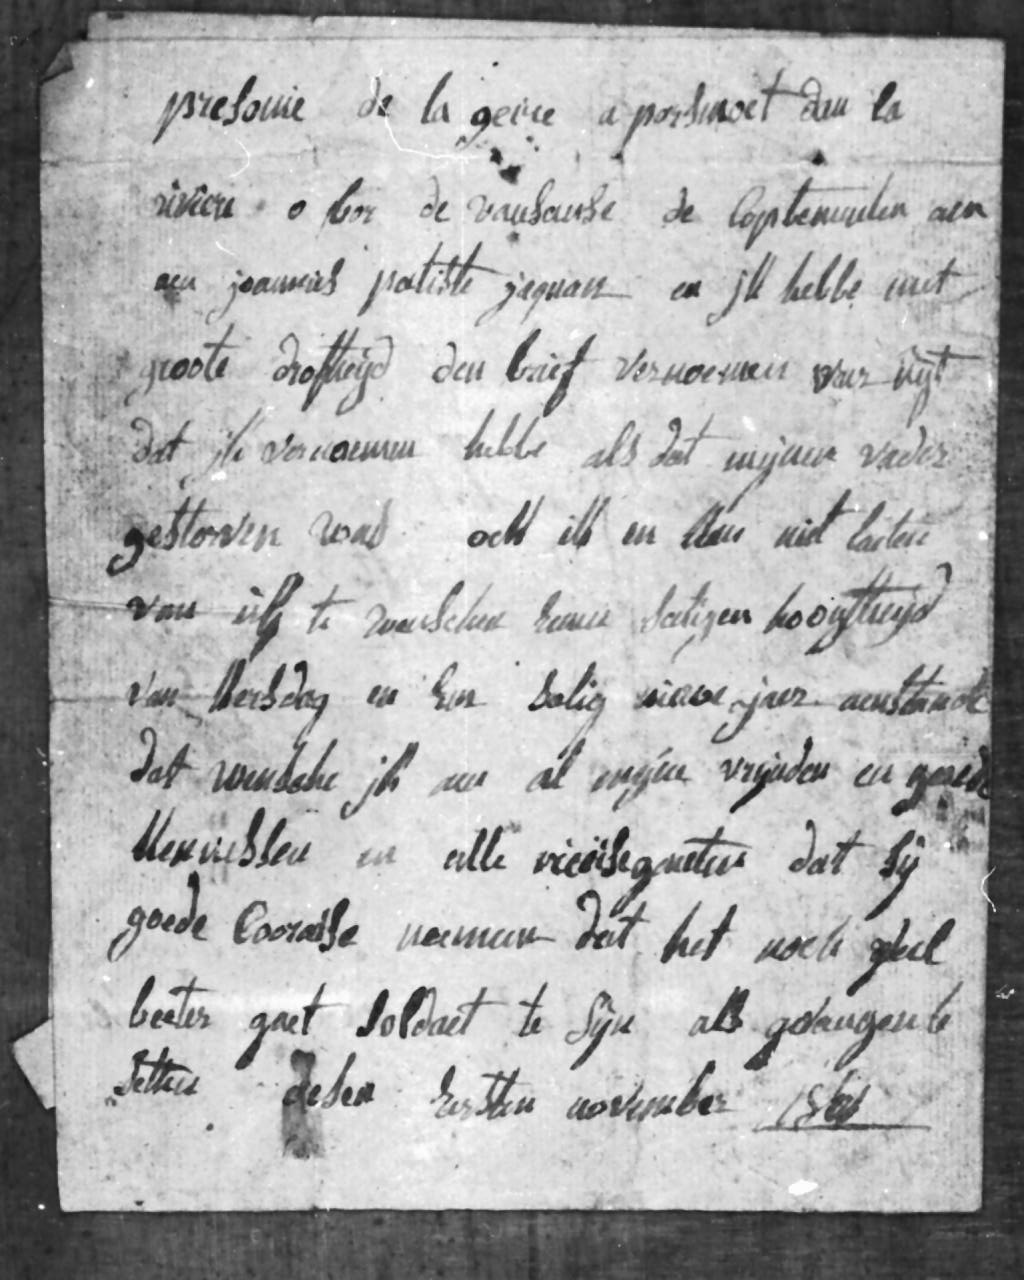 presonie de la geire a porsmoet dan la
riviere o bor de vausause de Captemuelen aen
aen joannies patiste jaquan en jk hebbe met
groote drofheijd den brief vernoemen waer uijt
dat jk vernoemen hebbe als dat mijnen vader
gestorven was ock ik en kan niet laeten
van ulf te wenschen eenen saligen hoogtheijd
van kersdag en een salig nieuwe jaer aenstande
dat wensche jk aen al mijne vrijnden en goede
kennissen en alle
goede Coorasse neemen dat het noch veel
beeter gaet soldaet te sijn als gevangen te
setten desen eersten november